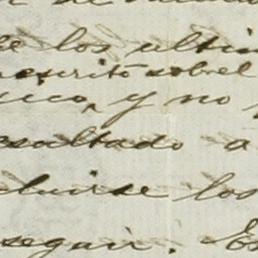 de los ultim
escrito sobre l
ico, y no
esultado a
luirse los
seguir. Es